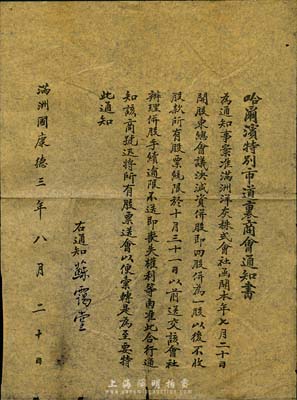 哈爾濱特別市道裏商會通知書
為通知事案准滿洲洋灰株式會社函開本年七月二十日
開股東總會議決減資併股即四股併為一股以後不收
股款所有股票統限於十月三十一日以前送交該會社
辦理併股手續逾限不送即喪失權利等由准此合行通
知該商號迅將所有股票送會以便彙轉是為至要特
此通知
右通知 蘇靄堂
滿洲國康德三年八月二十日
上海陽明拍賣